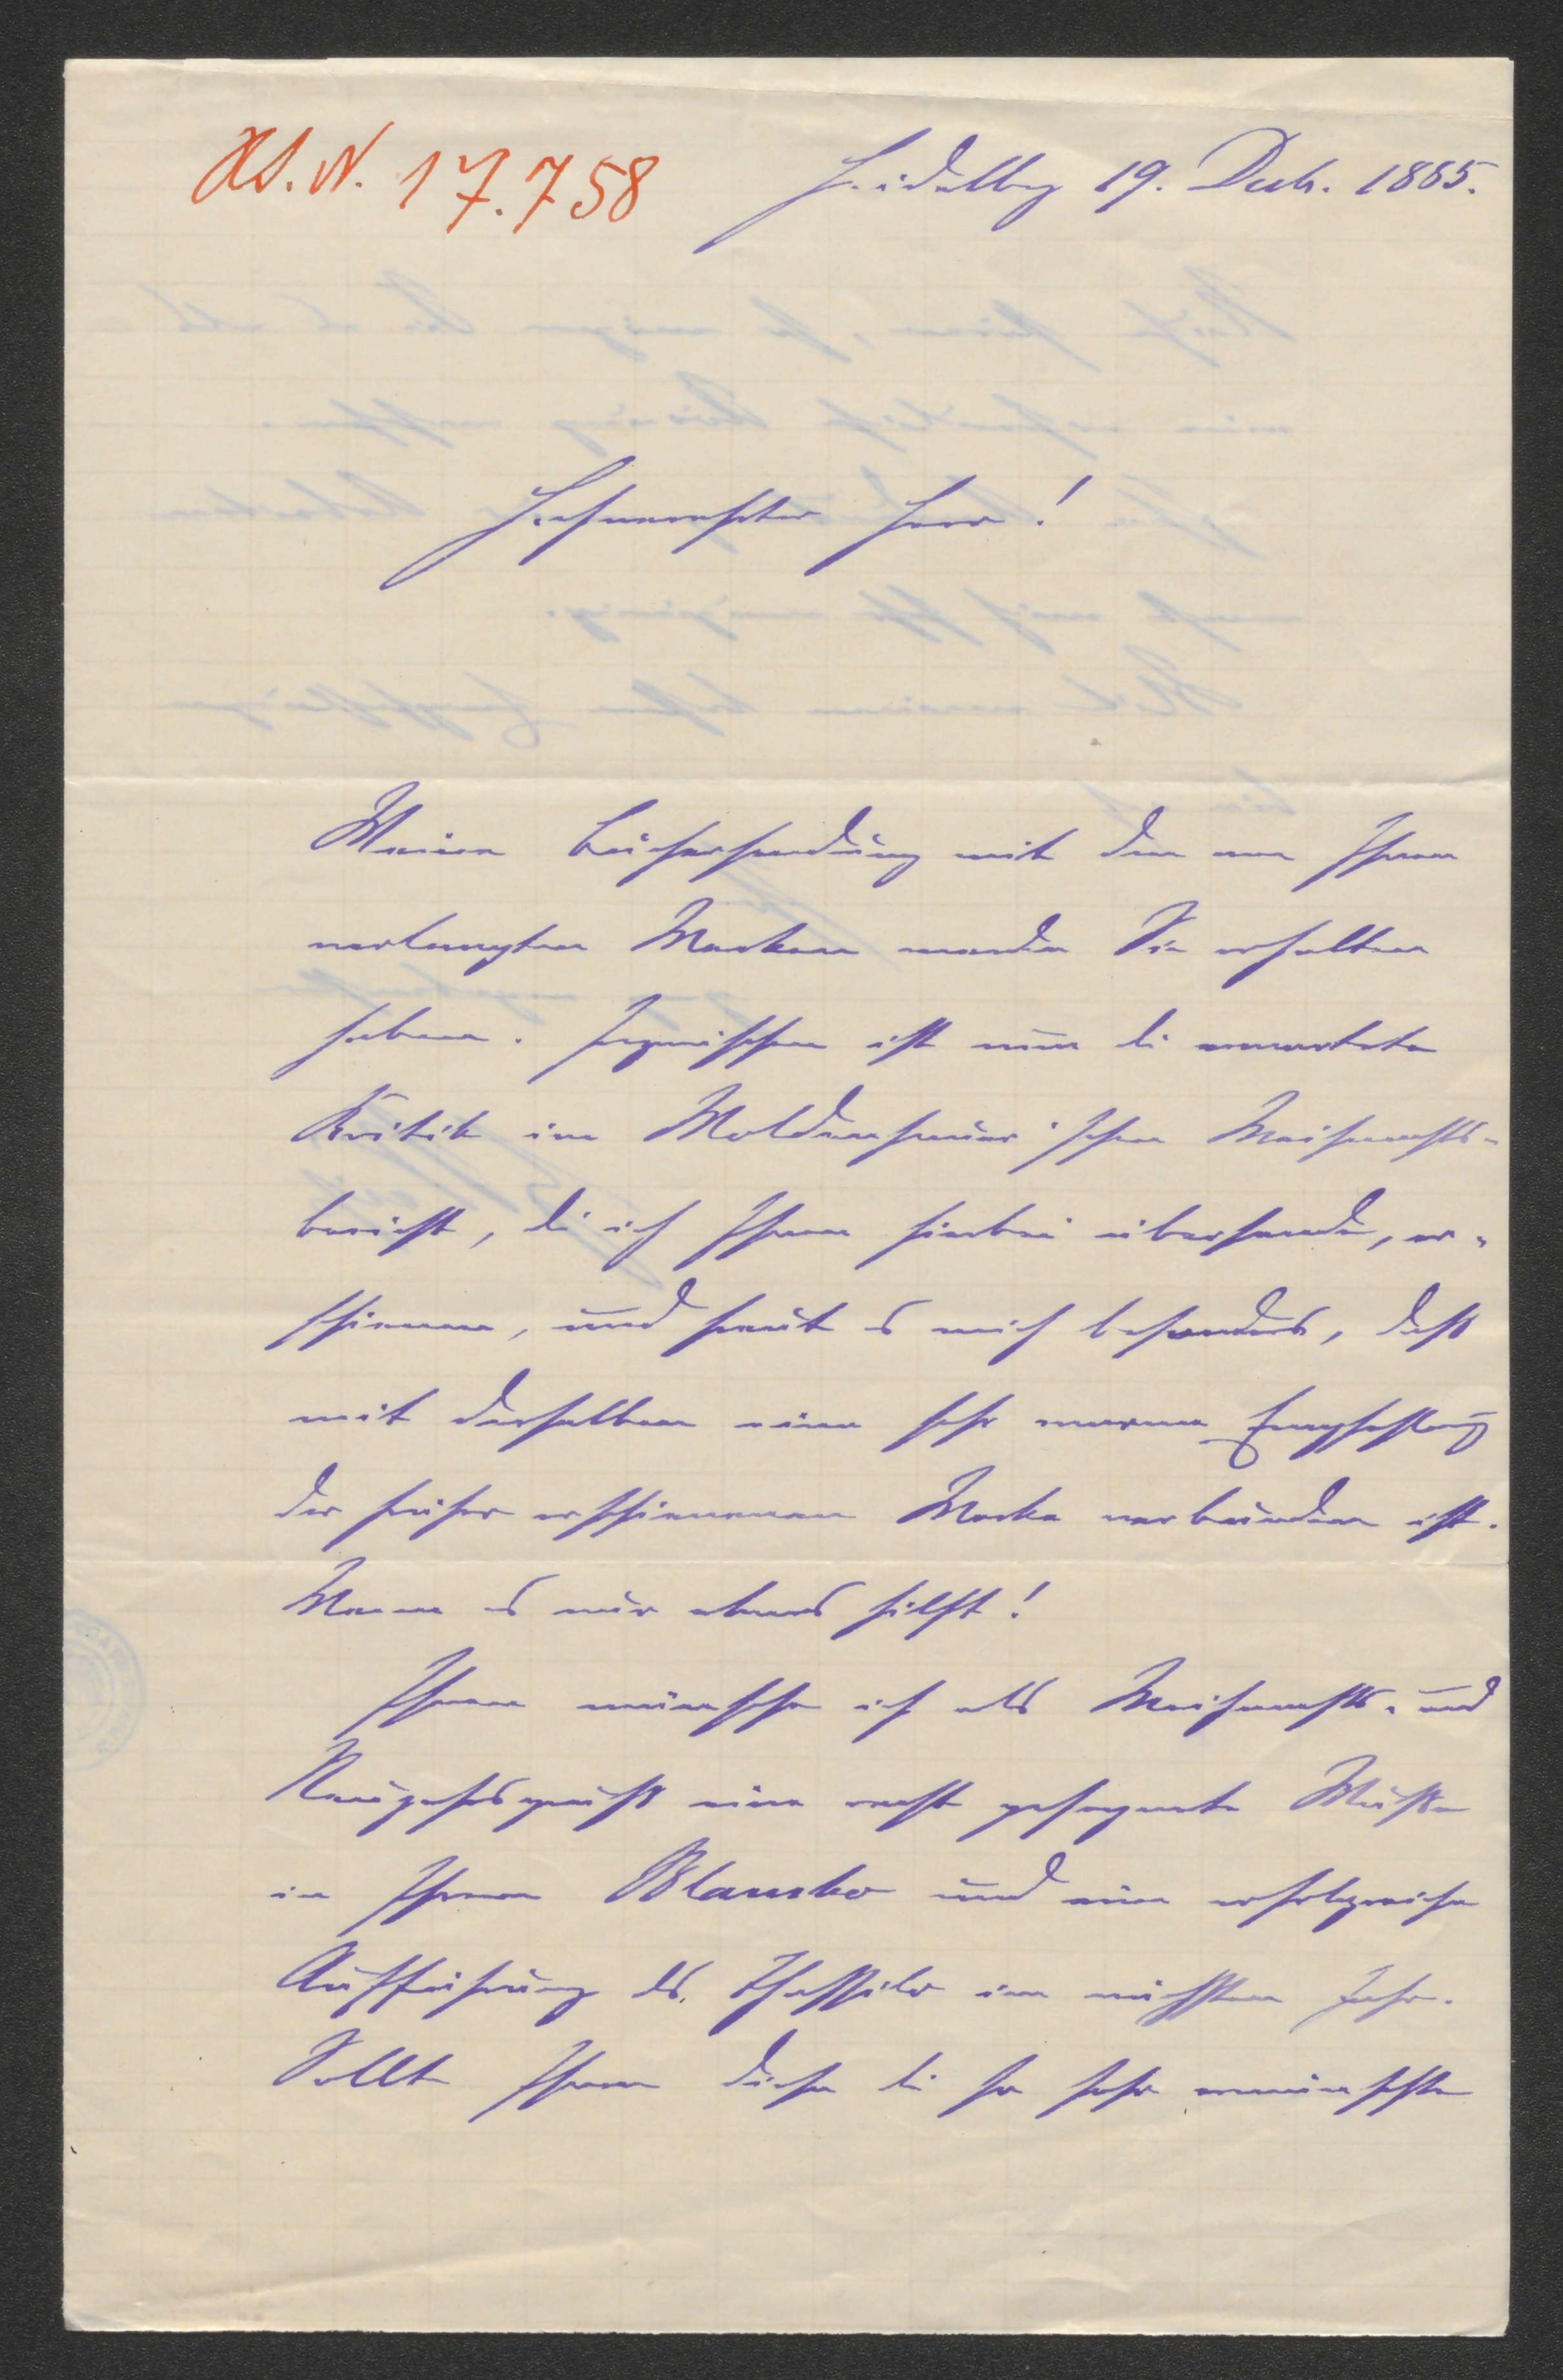 HS.N. 17.758
Heidelbg 19. Decb. 1885.
Hochverehrter Herr!
Meine Büchersendung mit den von Ihnen
verlangten Werken werden Sie erhalten
haben. Inzwischen ist nun die erwartete
Kritik im Moldenhauer'schen Weihnachts-
bericht, die ich Ihnen hierbei übersende, er-
schienen, und freut es mich besonders, daß
mit derselben eine sehr warme Empfehlung
der früher erschienenen Werke verbunden ist.
Wenn es nur etwas hilft!
Ihnen wünsche ich als Weihnachts- und
Neujahrsgruß eine recht gesegnete Muße
in Ihrem Blansko und eine erfolgreiche
Aufführung des Thassilo im nächsten Jahr.
Sollte Ihnen diese die so sehr erwünschte